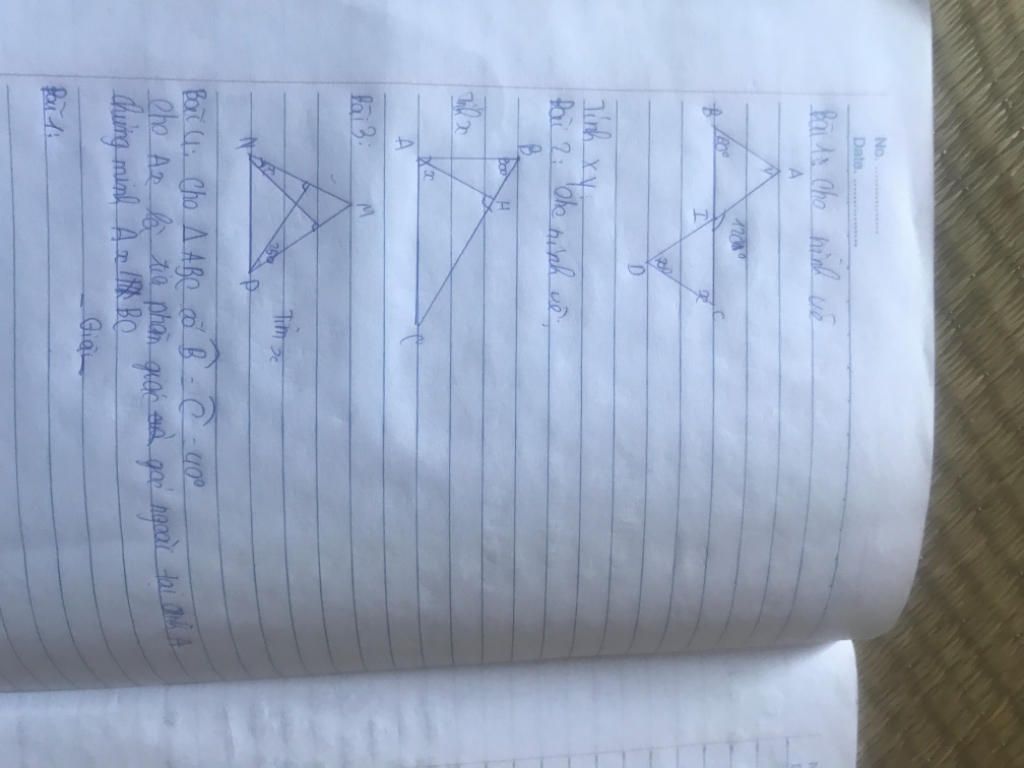 No.
Date.
Bài 1: Cho hình vẽ
A
120°
B
I
C
x
D
Tính x y
Bài 2: Cho hình vẽ,
B
H
Tính x
A
x
C
Bài 3:
M
N
x
P
Tìm x
Bài 4: Cho Δ ABC có B̂ = Ĉ = 40°
Cho Ax là tia phân giác góc ngoài tại đỉnh A
Chứng minh Ax BC
Giải
Bài 1: